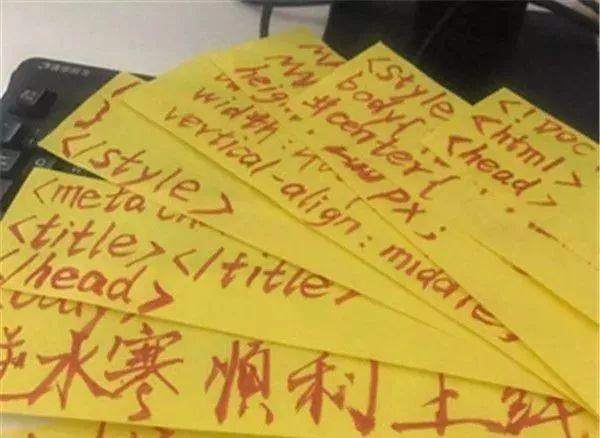 <!DOC
<html>
<head>
<style
body{
#center{
px;
width:
vertical-align: middle;
}
</style>
<meta
<title></title>
</head>
水寒 順利上